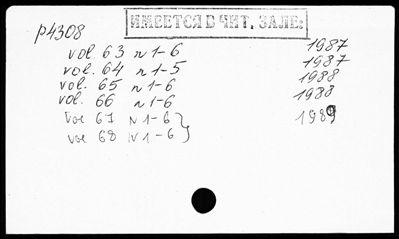 ИМЕЕТСЯ В ЧИТ. ЗАЛЕ:
P4308
vol. 63 N 1-6 1987
vol. 64 N 1-5 1987
vol. 65 N 1-6 1988
vol. 66 N 1-6 1988
vol 67 N 1-6 } 1989
vol 68 N 1-6 }